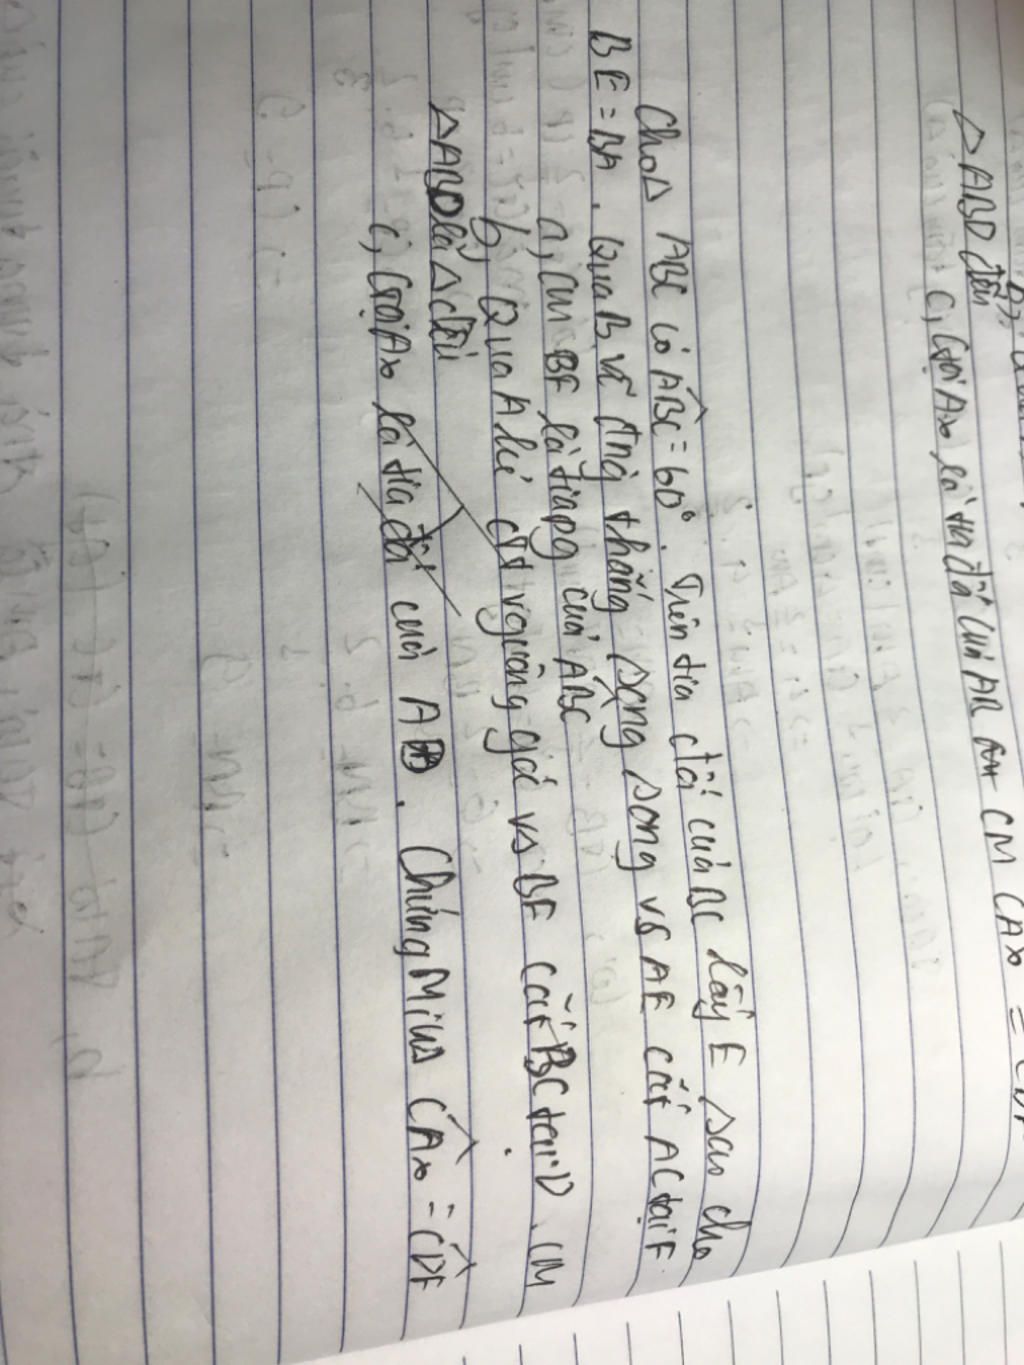 ΔABD đều
c, Gọi Ax là tia đối của AB CM CAx =
Cho Δ ABC có ABC = 60°. Trên tia đối của BC lấy E sao cho
BE = BA. Qua B vẽ đng thẳng song song vs AE cắt AC tại F
a, CM BF là tia pg của ABC
b, Qua A kẻ đt vguông góc vs BF cắt BC tại D. CM
ΔABD là Δ đều
c, Gọi Ax là tia đối của AB. Chứng Minh CAx = CDF